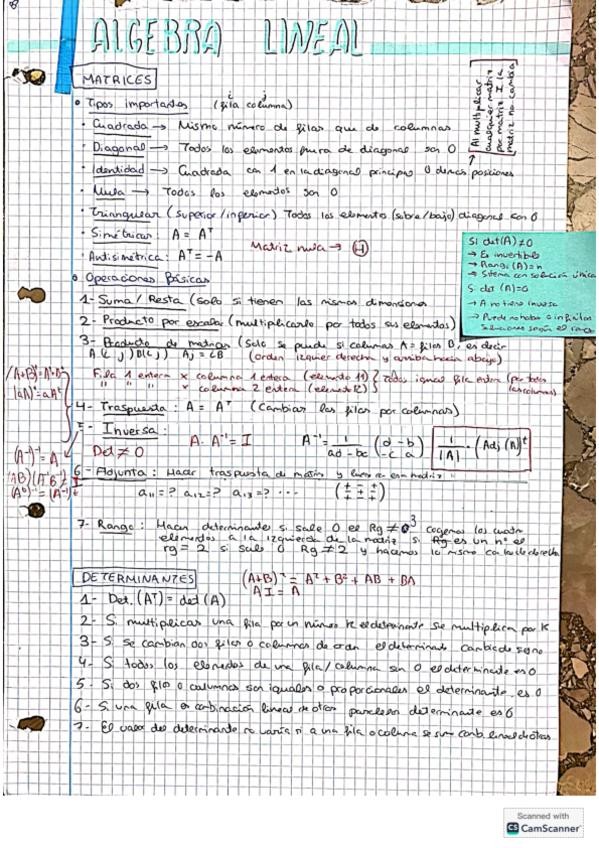 ALGEBRA LINEAL
MATRICES
• Tipos importantes (fila columna)
i j
· Cuadrada → Mismo número de filas que de columnas
· Diagonal → Todos los elementos fuera de diagonal son 0
· Identidad → Cuadrada con 1 en la diagonal principal 0 demas posiciones
· Nula → Todos los elementos son 0
· Triangular (superior/inferior) Todos los elementos (sobre/bajo) diagonal son 0
· Simétrica: A = Aᵀ
· Antisimétrica: Aᵀ = -A
Matriz nula → (H)
Al multiplicar
cualquier matriz
por matriz I la
matriz no cambia
Si det(A) ≠ 0
→ Es invertible
→ Rango (A) = n
→ Sistema con solución única
Si det (A) = 0
→ A no tiene inversa
→ Puede no haber o infinitas
soluciones según el rango
• Operaciones Básicas
1- Suma / Resta (Solo si tienen las mismas dimensiones
2- Producto por escalar (multiplicarlo por todos sus elementos)
3- Producto de matrices (Solo se puede si columnas A = filas B, es decir
(orden izquier derecha y arriba hacia abajo)
Fila 1 entera × columna 1 entera (elemento 11)
" " " × columna 2 entera (elemento 12)
Todos igual fila entera (por todas
las columnas)
4- Traspuesta: A = Aᵀ (Cambiar las filas por columnas)
5- Inversa: A · A⁻¹ = I
A⁻¹ = 1/(ad - bc) (d -b / -c a)
1/|A| · (Adj (A))ᵗ
Det ≠ 0
(A⁻¹)⁻¹ = A
6- Adjunta: Hacer traspuesta de matriz y
a₁₁ = ? a₁₂ = ? a₁₃ = ? ...
7- Rango: Hacer determinante si sale 0 es Rg ≠ 3 cogemos los cuatro
elementos a la izquierda de la matriz si es un nº el
rg = 2 si sale 0 Rg ≠ 2 y hacemos lo mismo con los de derecha
DETERMINANTES
(A+B)² = A² + B² + AB + BA
AI = A
1- Det. (Aᵀ) = det (A)
2- Si multiplicas una fila por un número K el determinante se multiplica por K
3- Si se cambian dos filas o columnas de orden el determinante cambia de signo
4- Si todos los elementos de una fila/columna son 0 el determinante es 0
5- Si dos filas o columnas son iguales o proporcionales el determinante es 0
6- Si una fila es combinación lineal de otras paralelas determinante es 0
7- El valor del determinante no varía si a una fila o columna se suma comb. lineal de otras
Scanned with
CS CamScanner